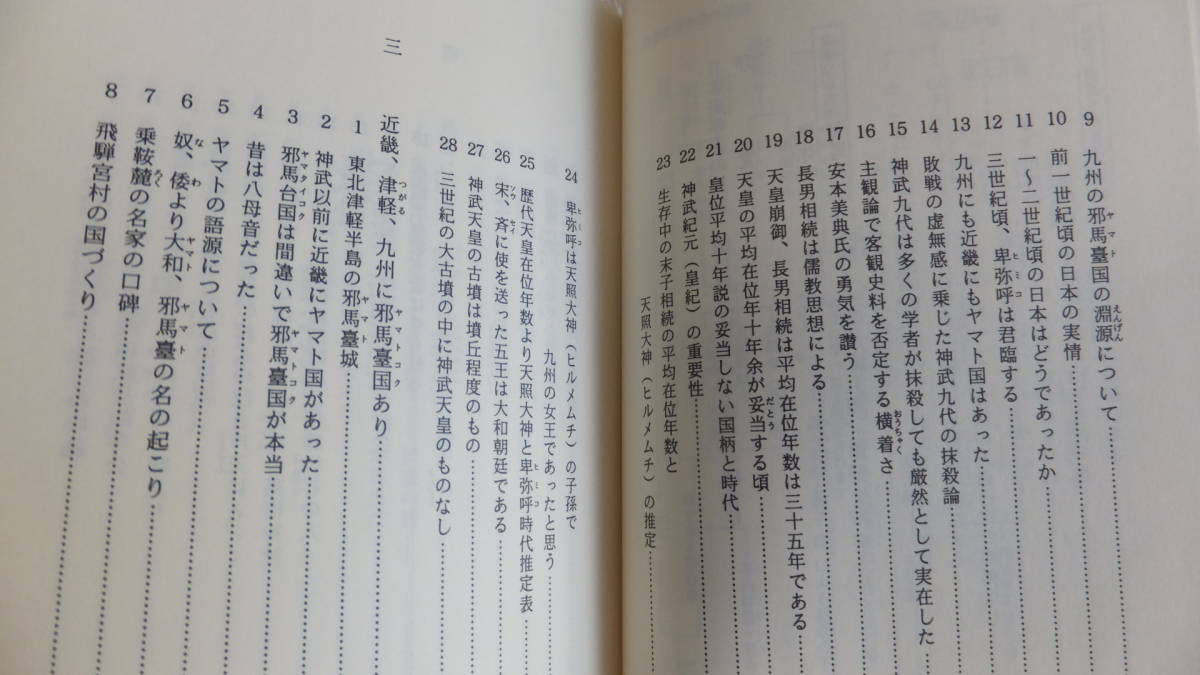 9 九州の邪馬臺国の淵源について
10 前一世紀頃の日本の実情
11 一〜二世紀頃の日本はどうであったか
12 三世紀頃、卑弥呼は君臨する
13 九州にも近畿にもヤマト国はあった
14 敗戦の虚無感に乗じた神武九代の抹殺論
15 神武九代は多くの学者が抹殺しても厳然として実在した
16 主観論で客観史料を否定する横着さ
17 安本美典氏の勇気を讃う
18 長男相続は儒教思想による
19 天皇崩御、長男相続は平均在位年数は三十五年である
20 天皇の平均在位年十年余が妥当する頃
21 皇位平均十年説の妥当しない国柄と時代
22 神武紀元(皇紀)の重要性
23 生存中の末子相続の平均在位年数と
天照大神(ヒルメムチ)の推定
24 卑弥呼は天照大神(ヒルメムチ)の子孫で
九州の女王であったと思う
25 歴代天皇在位年数より天照大神と卑弥呼時代推定表
26 宋、斉に使を送った五王は大和朝廷である
27 神武天皇の古墳は墳丘程度のもの
28 三世紀の大古墳の中に神武天皇のものなし
三 近畿、津軽、九州に邪馬臺国あり
1 東北津軽半島の邪馬臺城
2 神武以前に近畿にヤマト国があった
3 邪馬台国は間違いで邪馬臺国が本当
4 昔は八母音だった
5 ヤマトの語源について
6 奴、倭より大和、邪馬臺の名の起こり
7 乗鞍麓の名家の口碑
8 飛騨宮村の国づくり